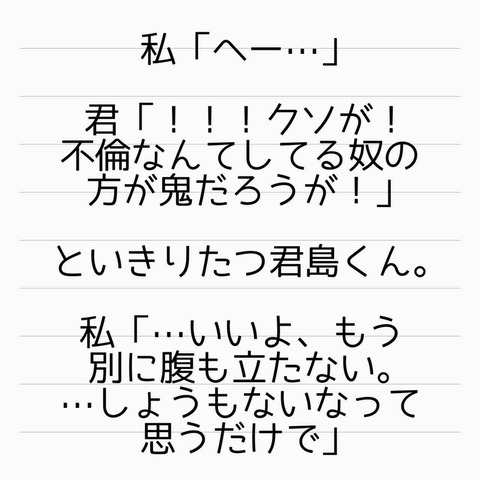 私「へー…」
君「！！！クソが！
不倫なんてしてる奴の
方が鬼だろうが！」
といきりたつ君島くん。
私「…いいよ、もう
別に腹も立たない。
…しょうもないなって
思うだけで」